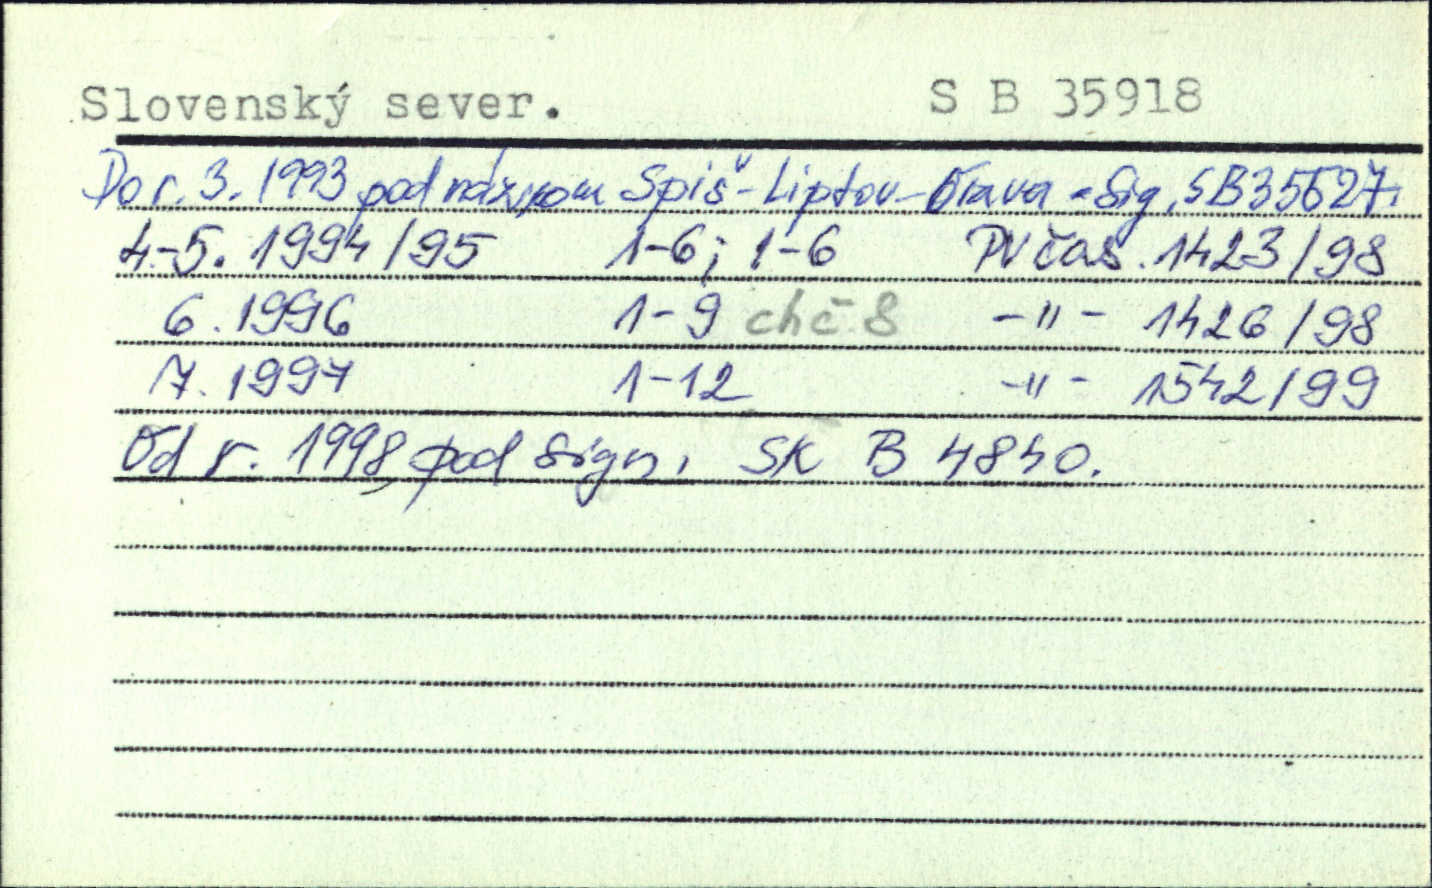 Slovenský sever. S B 35918
Do r. 3. 1993 pod názvom Spiš-Liptov-Orava - Sig. SB35627.
4-5. 1994/95 1-6; 1-6 PV čas. 1423/98
6. 1996 1-9 chč. 8 -"- 1426/98
7. 1997 1-12 -"- 1542/99
Od r. 1998 pod sign. SK B 4840.